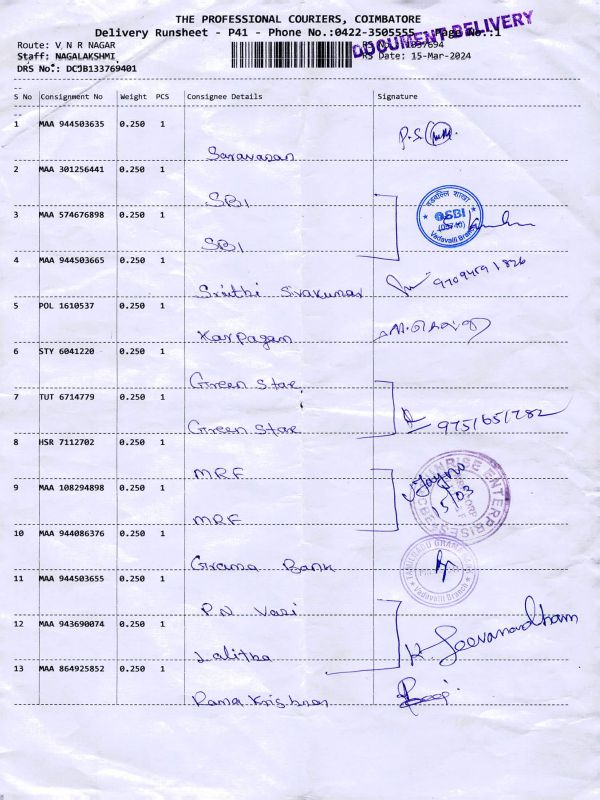 THE PROFESSIONAL COURIERS, COIMBATORE
Delivery Runsheet - P41 - Phone No.:0422-3505555 Page No.:1
DOCUMENT DELIVERY
Route: V N R NAGAR
Staff: NAGALAKSHMI
DRS Date: 15-Mar-2024
DRS No.: DCJB133769401
S No Consignment No Weight PCS Consignee Details Signature
1 MAA 944503635 0.250 1
Saravanan
P.S.
2 MAA 301256441 0.250 1
SBI
3 MAA 574676898 0.250 1
SBI
SBI
Vadavalli Branch
4 MAA 944503665 0.250 1
Sruthi Sivakumar
5 POL 1610537 0.250 1
Karpagam
6 STY 6041220 0.250 1
Green Star
7 TUT 6714779 0.250 1
Green Star
9751651282
8 HSR 7112702 0.250 1
MRF
9 MAA 108294898 0.250 1
MRF
15/03
SUNRISE ENTERPRISES
10 MAA 944086376 0.250 1
Grama Bank
Vadavalli Branch
11 MAA 944503655 0.250 1
P.N Vasi
12 MAA 943690074 0.250 1
Lalitha
K. Jeevanandham
13 MAA 864925852 0.250 1
Rama Krishnan